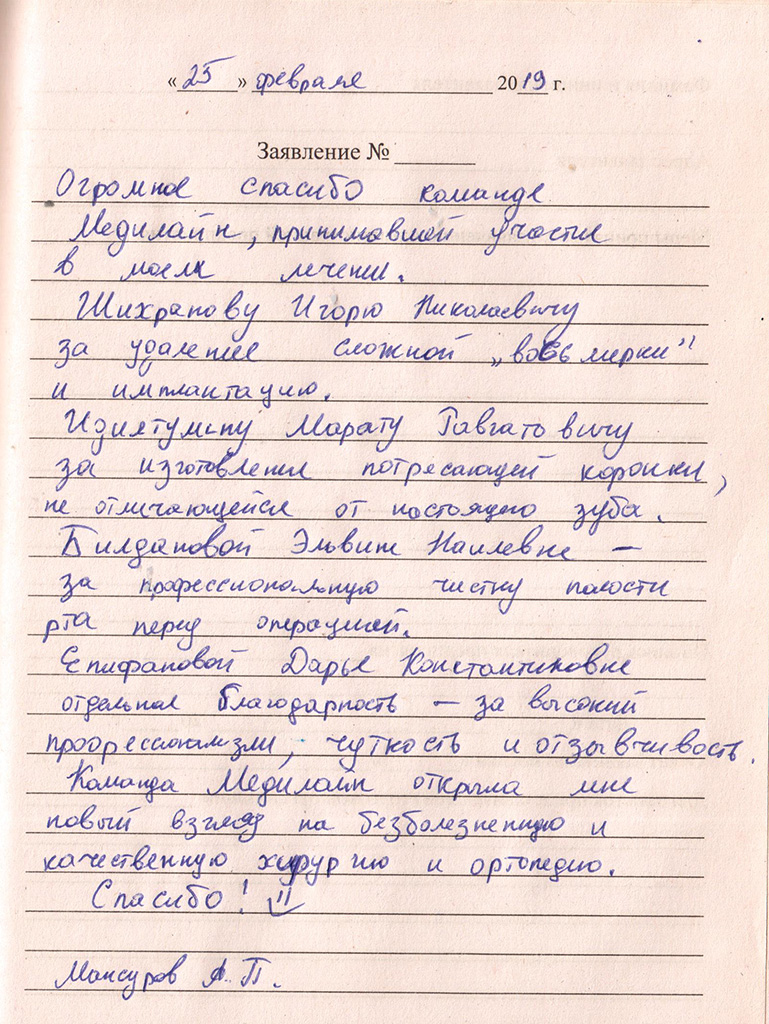 « 25 » февраля 2019 г.
Заявление №
Огромное спасибо команде
Медилайн, принимавшей участие
в моем лечении.
Шихранову Игорю Николаевичу
за удаление сложной „восьмерки"
и имплантацию.
Марату
за изготовление потрясающей коронки,
не отличающейся от настоящего зуба.
Билдановой Эльвине Наилевне —
за профессиональную чистку полости
рта перед операцией.
Епифановой Дарье Константиновне
отдельная благодарность — за высокий
профессионализм, чуткость и отзывчивость.
Команда Медилайн открыла мне
новый взгляд на безболезненную и
качественную хирургию и ортопедию.
Спасибо!
Мансуров А. П.